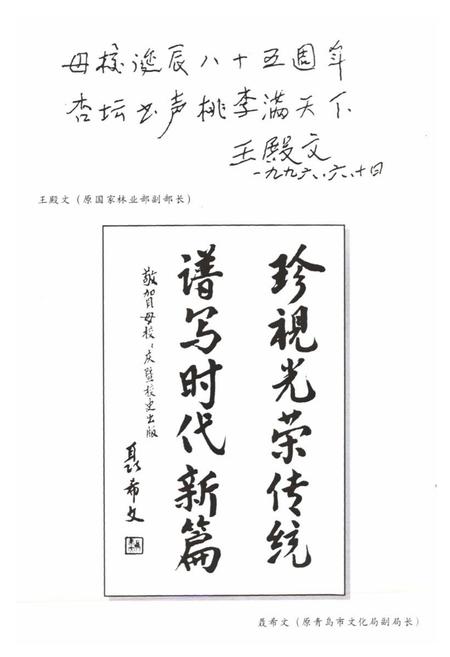 母校诞辰八十五週年
杏坛书声桃李满天下
王殿文
一九九六.六.十日
王殿文（原国家林业部副部长）
珍視光荣传统
谱写时代新篇
敬贺母校校庆暨校史出版
聂希文
聂希文（原青岛市文化局副局长）